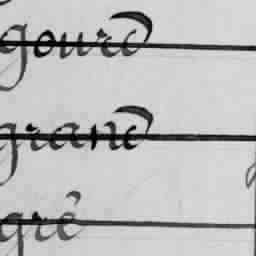 gourd
grand
gré